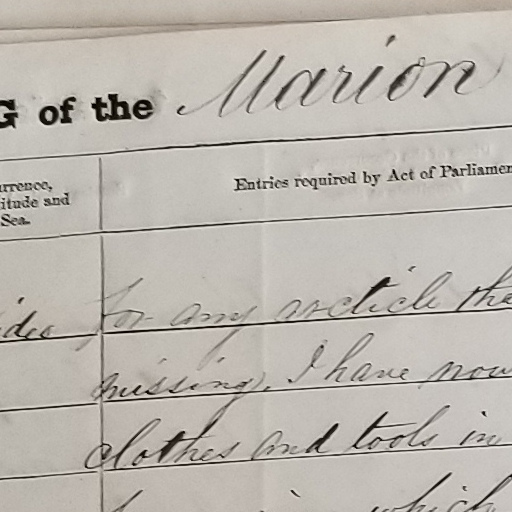 G of the Marion
urrence,
itude and
Sea.
Entries required by Act of Parliamen
ides for any article tha
missing, I have now
clothes and tools in
which